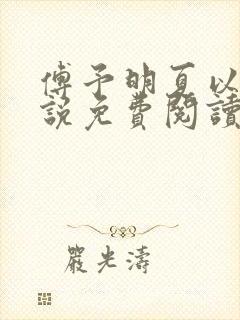 傅予明夏以
說免費閱讀
嚴光濤